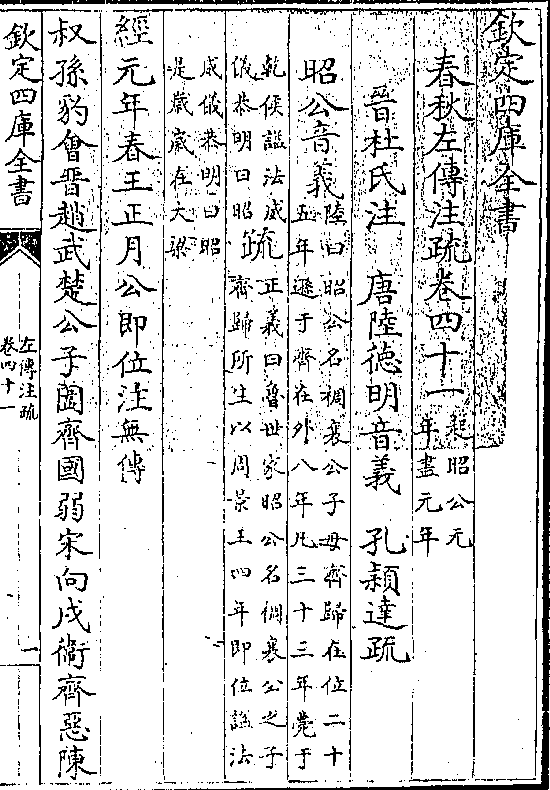 欽定四庫全書
春秋左傳注疏卷四十一
起昭公元
年盡元年
晉杜氏注 唐陸德明音義 孔穎達疏
昭公音義
陸曰昭公名裯襄公子母齊歸在位二十
五年遜于齊在外八年凡三十三年薨于
乾侯諡法威
儀恭明曰昭
疏
正義曰魯世家昭公名裯襄公之子
齊歸所生以周景王四年即位諡法
威儀恭明曰昭
是歲歲在大梁
經元年春王正月公即位注無傳
叔孫豹會晉趙武楚公子圍齊國弱宋向戌衛齊惡陳
欽定四庫全書
左傳注疏
卷四十一
一